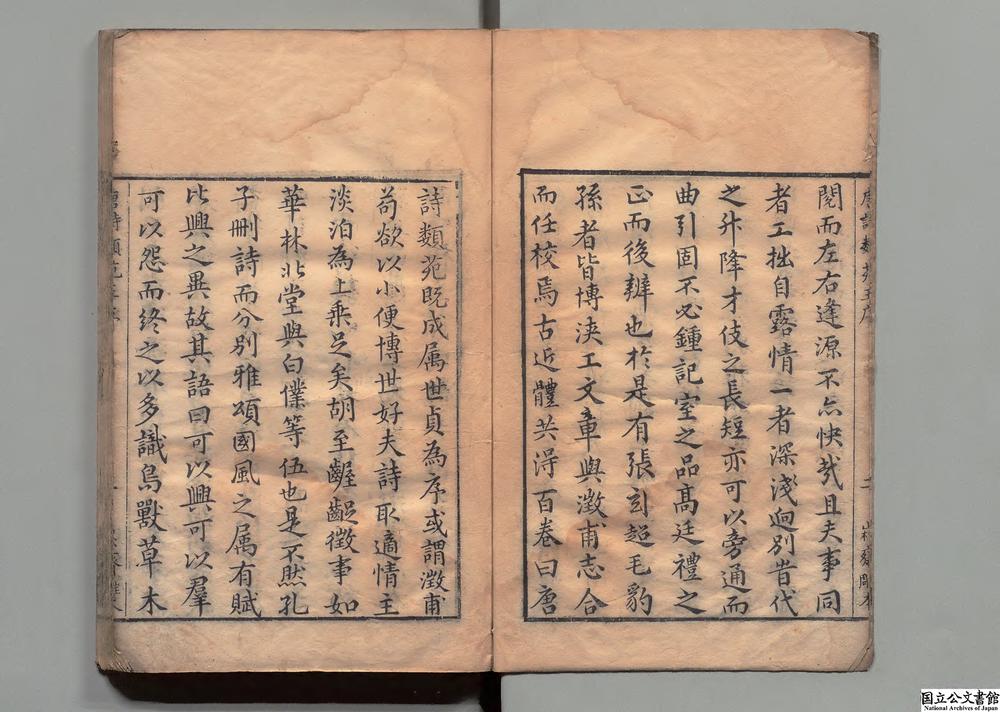 唐詩類苑王序
二
閱而左右逢源不亦快哉且夫事同
者工拙自露情一者深淺逈別昔代
之升降才伎之長短亦可以旁通而
曲引固不必鍾記室之品髙廷禮之
正而後辨也於是有張玄超毛豹
孫者皆博浹工文章與澂甫志合
而任校焉古近體共淂百卷曰唐
詩類苑既成属世貞為序或謂澂甫
苟欲以小便博世好夫詩取適情主
淡泊為上乗足矣胡至齷齪徵事如
華林北堂與白僕等伍也是不然孔
子刪詩而分別雅頌國風之属有賦
比興之異故其語曰可以興可以羣
可以怨而終之以多識鳥獸草木
国立公文書館
National Archives of Japan